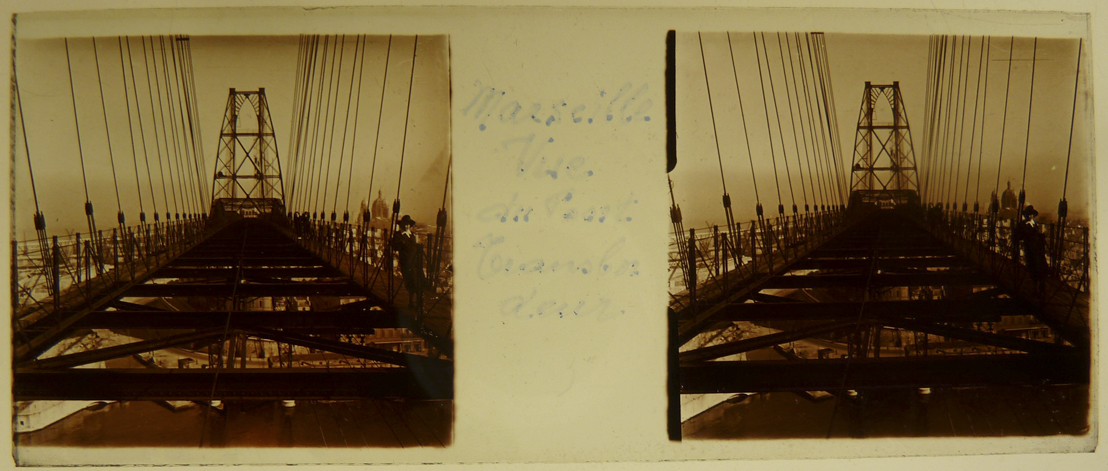 Marseille.
Vue
du Pont
Transbor
deur.